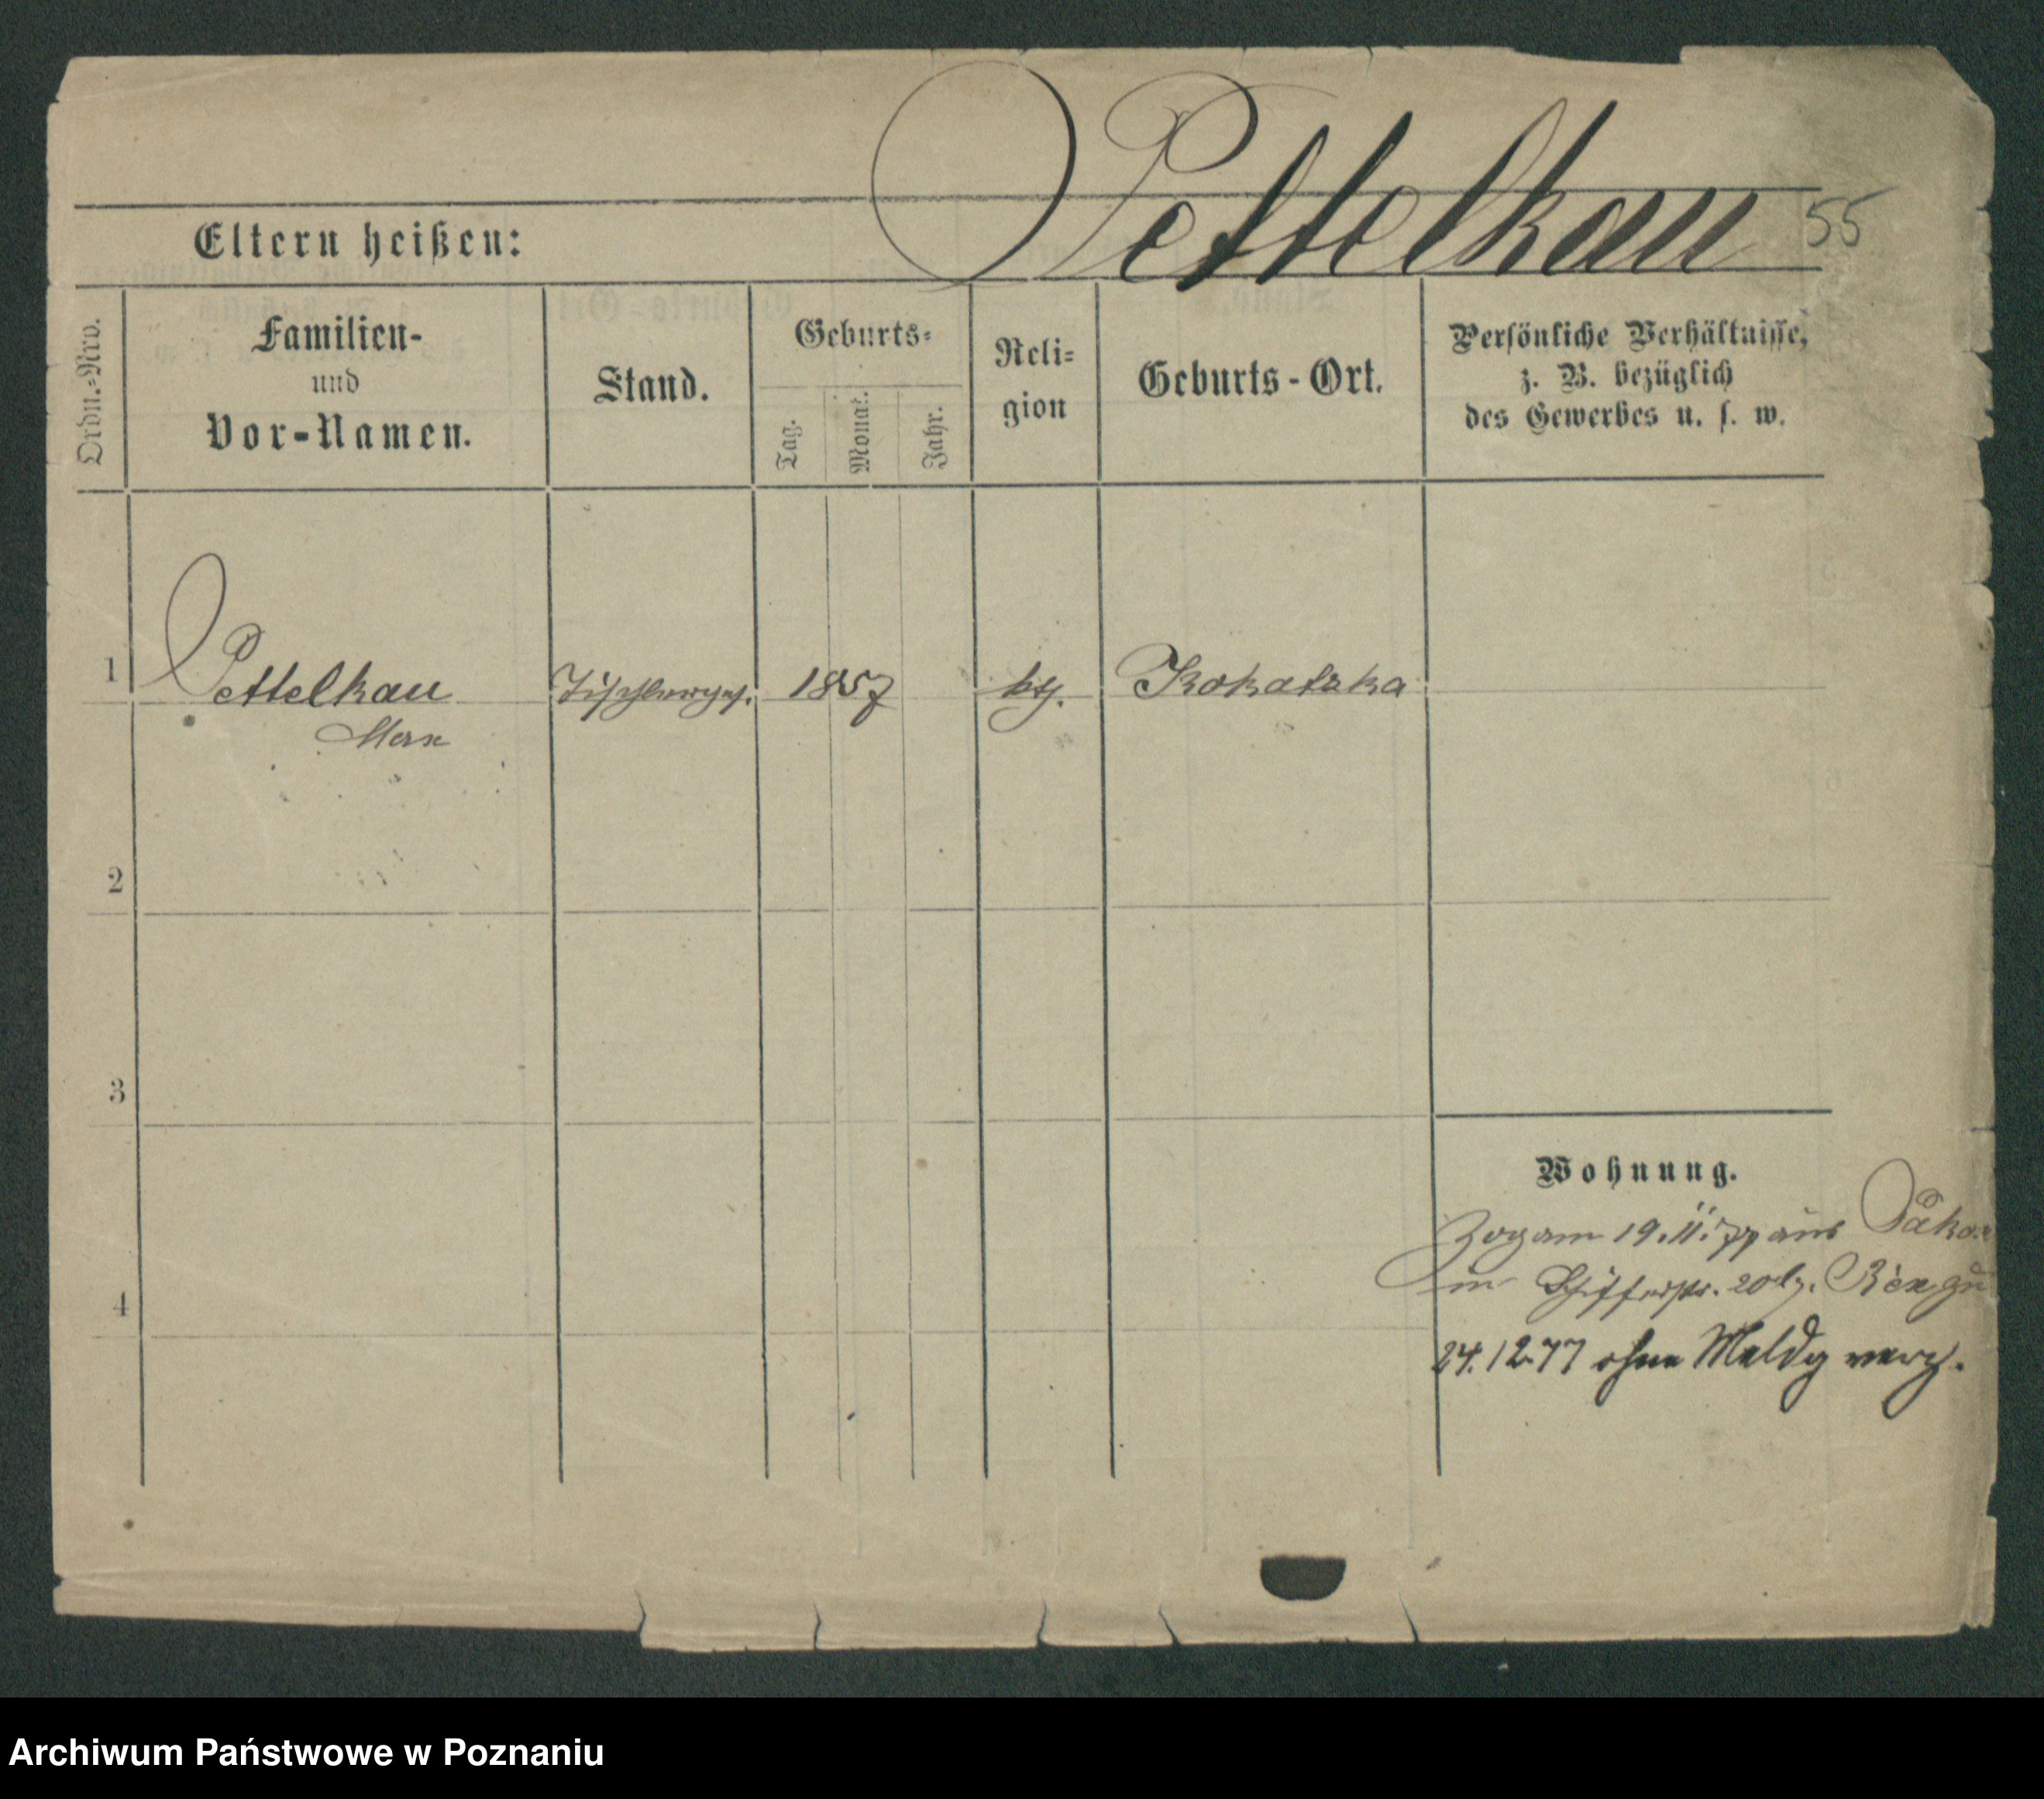 Pettelkau
55
Eltern heißen:
Ordn.-Nro.
Familien-
und
Vor-Namen.
Stand.
Geburts-
Tag.
Monat.
Jahr.
Reli-
gion
Geburts-Ort.
Persönliche Verhältnisse,
z. B. bezüglich
des Gewerbes u. s. w.
1
Pettelkau
Max
Tischlerges.
1857
kth.
Kokatzka
2
3
4
Wohnung.
Zog am 19.11.77 aus
in Schifferstr. 20 b.
24.12.77 ohne Meldg verz.
Archiwum Państwowe w Poznaniu